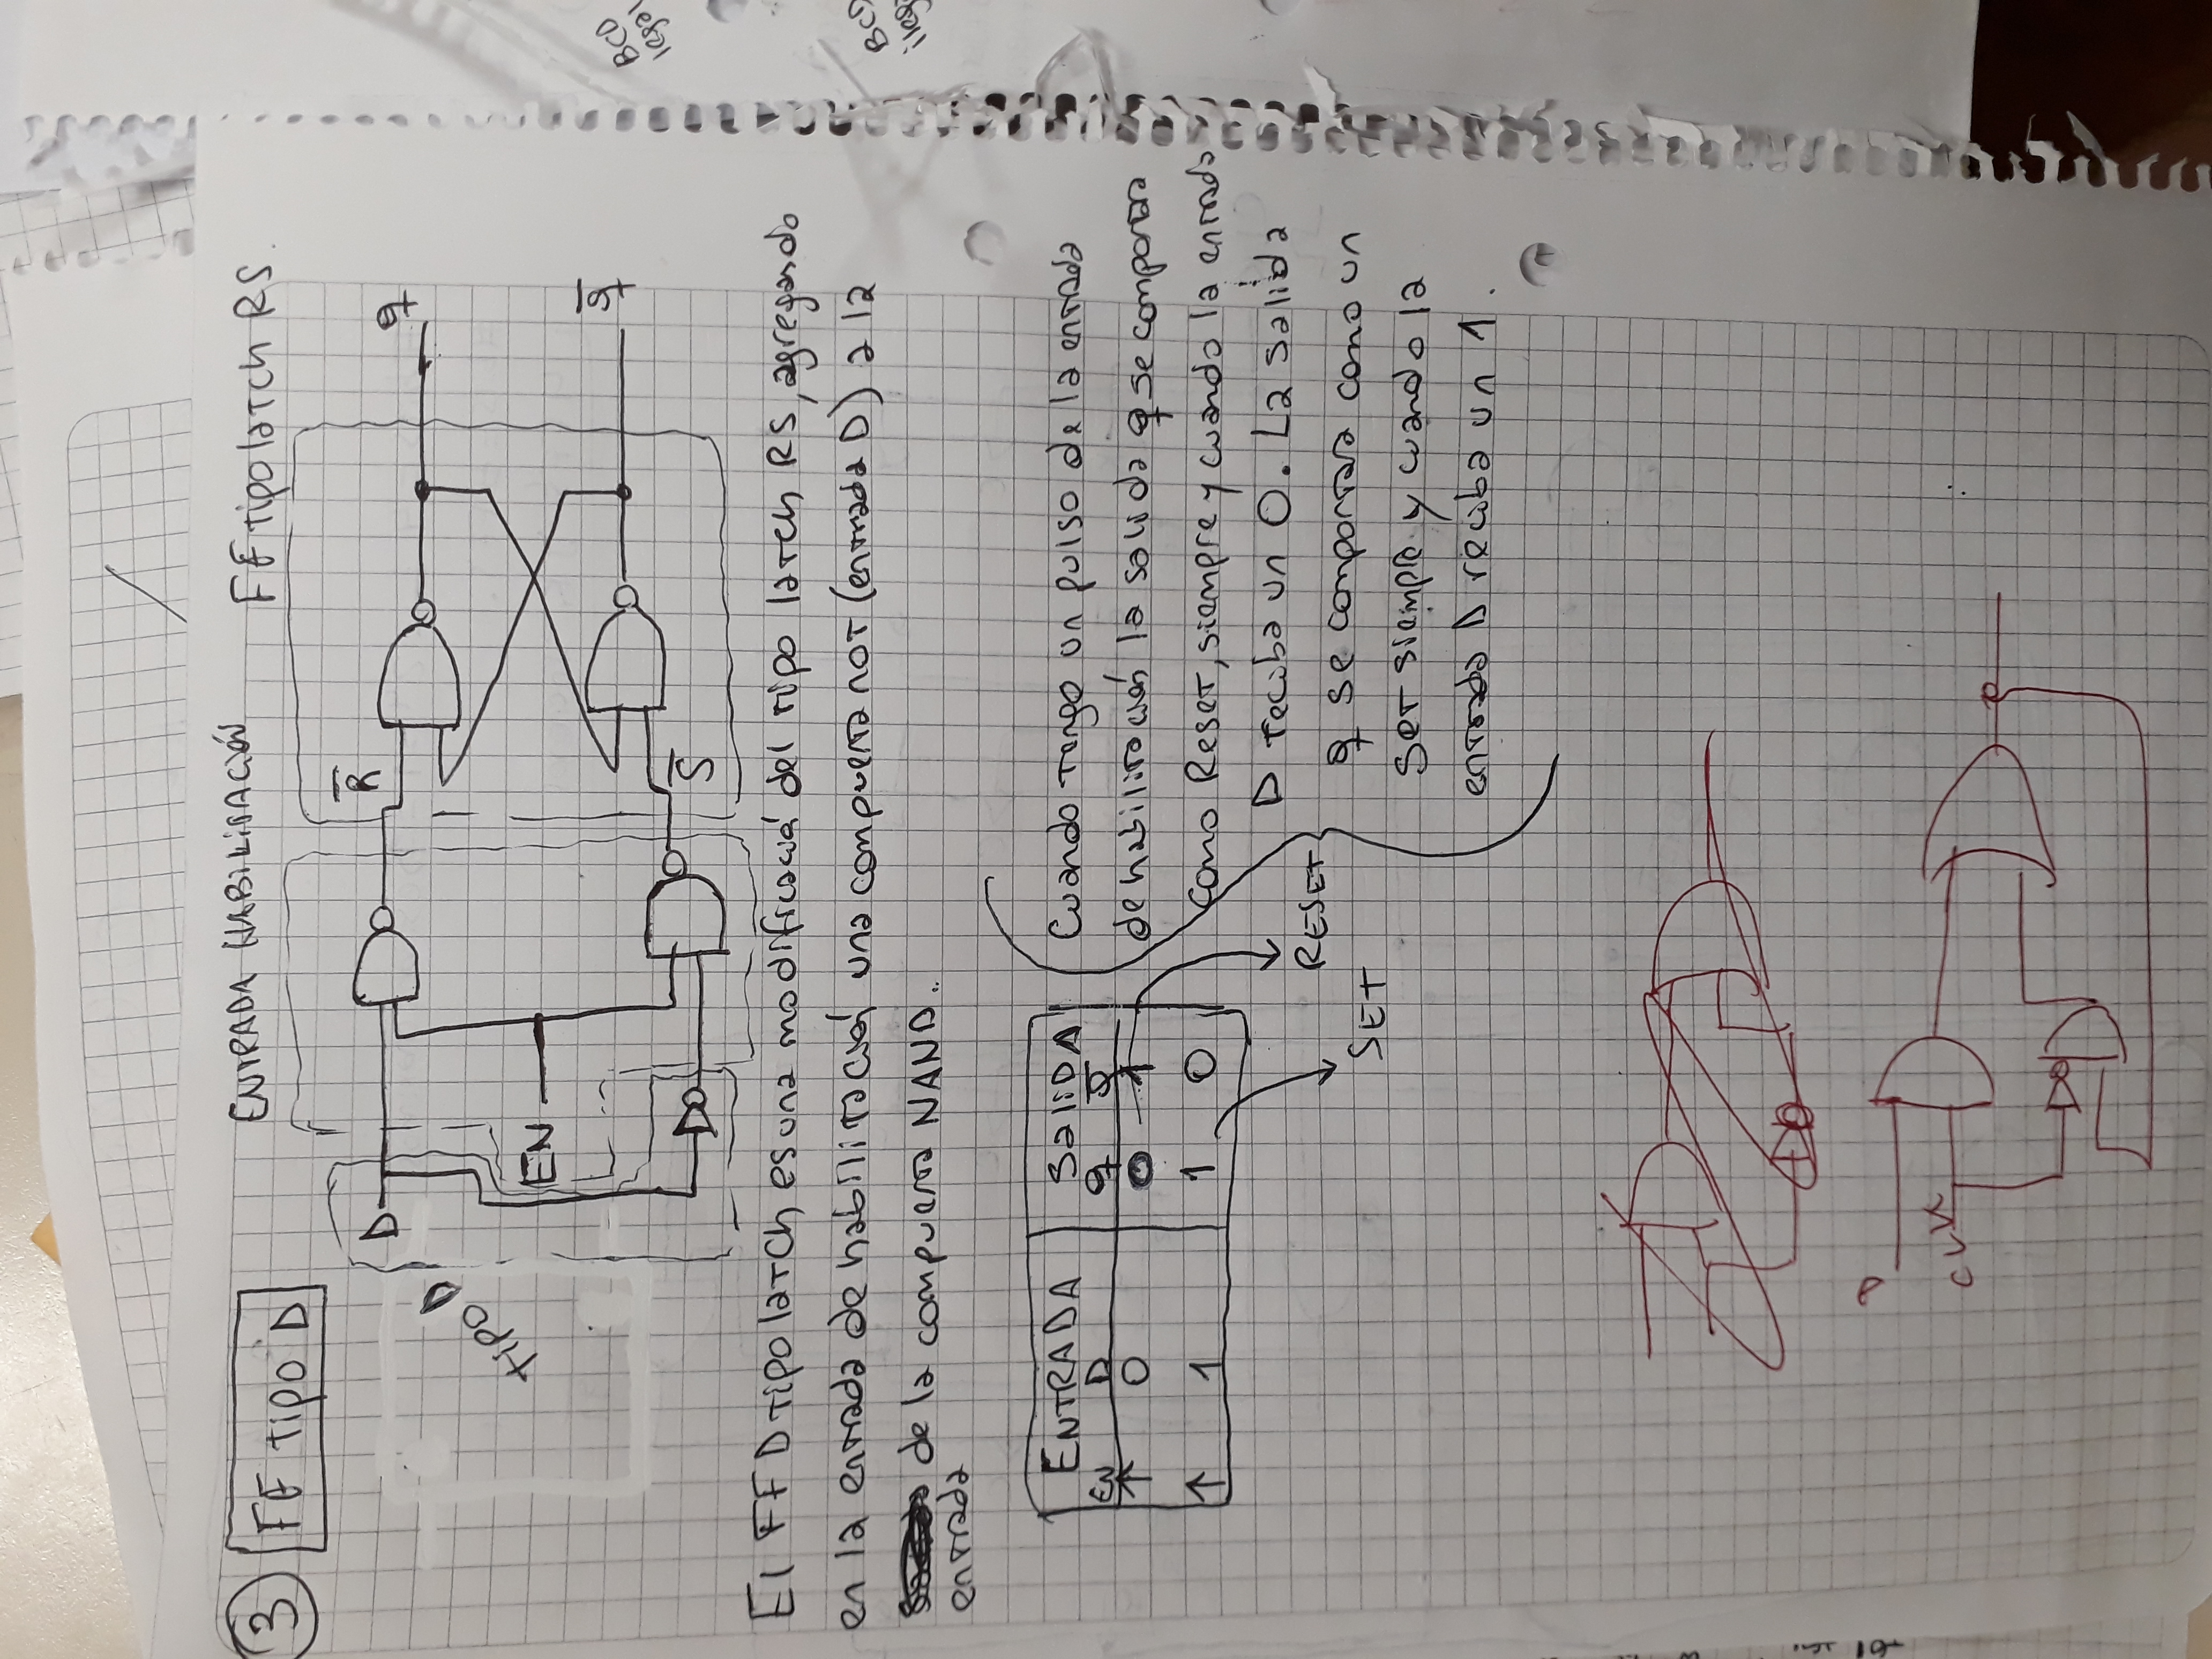 3 FF tipo D
ENTRADA HABILITACIÓN
FF tipo latch RS.
D
R̅
q
TIPO D
EN
q̅
S̅
El FF D tipo latch es una modificació del tipo latch RS, agregando
en la entrada de habilitació una compuerta not (entrada D) a la
de la compuerta NAND.
entrada
ENTRADA SaliDA
EN D q q̅
↑ 0 0 1
↑ 1 1 0
RESET
SET
Cuando tengo un pulso de la entrada
de habilitación la salida q se comporta
como Reset, siempre y cuando la entrada
D reciba un 0. La salida
q se comportara como un
set siempre y cuando la
entrada D reciba un 1.
D
CLK
BCD
legal
BCD